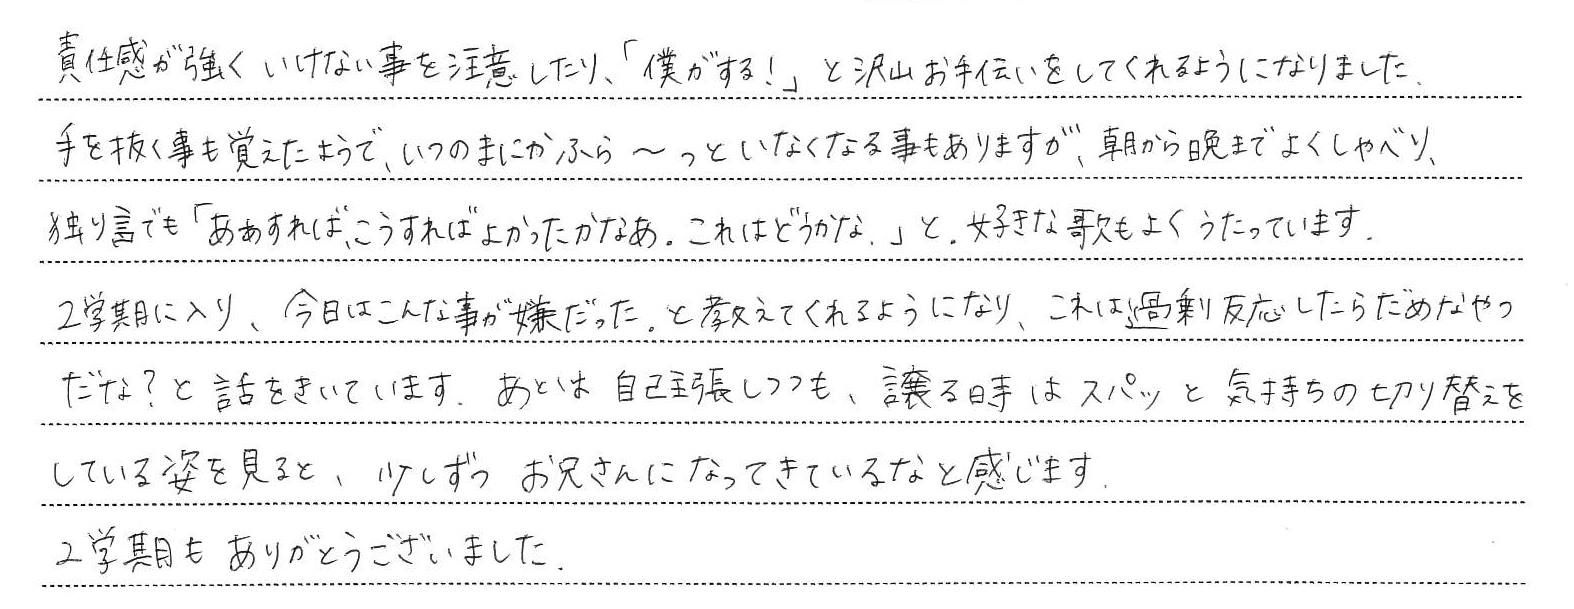 責任感が強く いけない事を注意したり、「僕がする!」と沢山お手伝いをしてくれるようになりました.
手を抜く事も覚えたようで、いつのまにかふら〜っといなくなる事もありますが、朝から晩までよくしゃべり、
独り言でも「ああすれば、こうすればよかったかなあ。これはどうかな.」と。好きな歌もよくうたっています.
2学期に入り、今日はこんな事が嫌だった。と教えてくれるようになり、これは過剰反応したらだめなやつ
だな?と話をきいています. あとは自己主張しつつも、譲る時はスパッと気持ちの切り替えを
している姿を見ると、少しずつ お兄さんになってきているなと感じます.
2学期もありがとうございました.